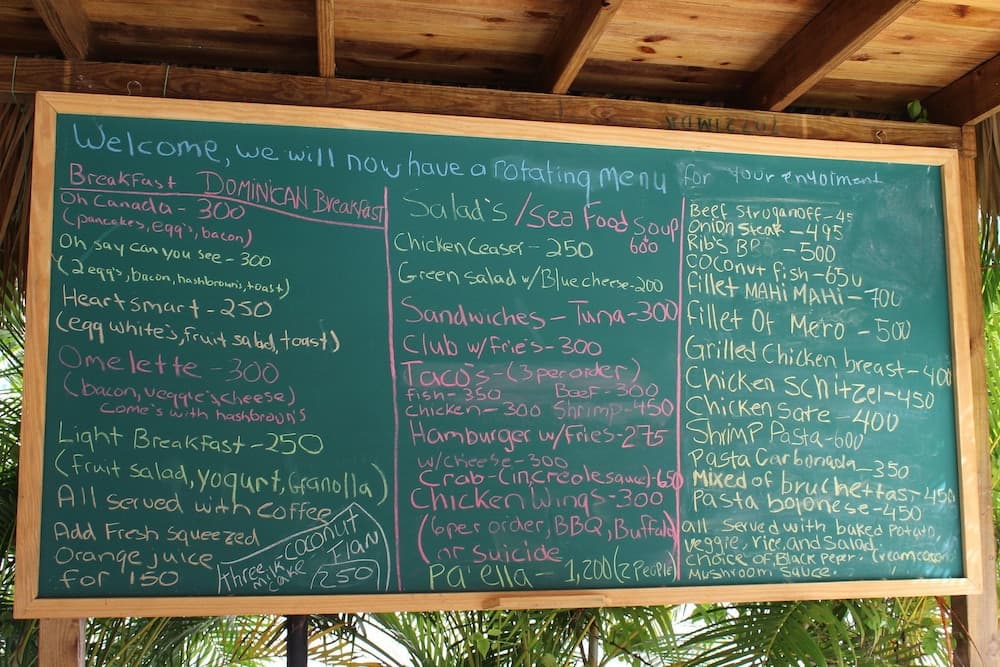 Welcome, we will now have a rotating menu for your enyoiment
Breakfast DOMINICAN Breakfast
Oh Canada - 300
(pancakes, egg's, bacon)
Oh say can you see - 300
(2 egg's, bacon, hashbrown's, toast)
Heart smart - 250
(egg white's, fruit salad, toast)
Omelette - 300
(bacon, veggie's, cheese)
come's with hashbrown's
Light Breakfast - 250
(fruit salad, yogurt, Granolla)
All served with coffee
Add Fresh squeezed
Orange juice
for 150
Three milk cake - coconut flan
250
Salad's / Sea Food Soup
600
Chicken Ceaser - 250
Green salad w/ Blue cheese - 200
Sandwiches - Tuna - 300
Club w/ Frie's - 300
Taco's - (3 per order)
fish - 350 Beef - 300
chicken - 300 Shrimp - 450
Hamburger w/ Fries - 275
w/ cheese - 300
Crab - (in creole sauce) - 650
Chicken Wings - 300
(6 per order, BBQ, Buffulo
or suicide
Pa'ella - 1,200 (2 People)
Beef Struganoff - 45
Onion Steak - 495
Rib's BBQ - 500
Coconut fish - 650
fillet MAHi MAHi - 700
Fillet Of Mero - 500
Grilled Chicken breast - 400
Chicken Schitzel - 450
Chicken sate - 400
Shrimp Pasta - 600
Pasta Carbonada - 350
Mixed of bruchettas - 450
Pasta bolonese - 450
all served with baked Potato,
veggie, rice, and Salad.
Choice of, Black Peper
Mushroom Sauce.